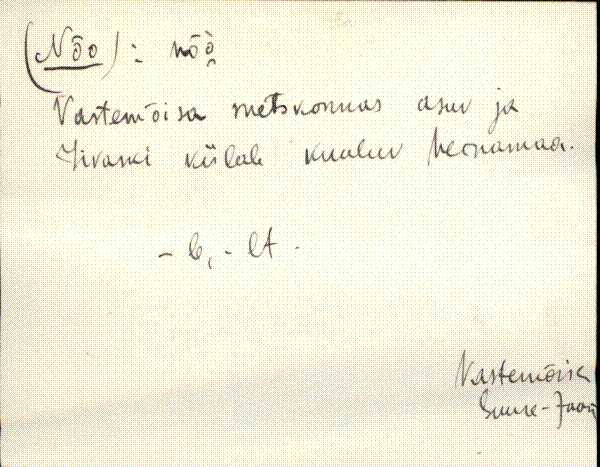 (Nõo) : nõò̭
Vastemõisa metskonnas asuv ja
Ilvaski külale kuuluv heinamaa.
- le, - lt.
Vastemõisa
Suure-Jaani